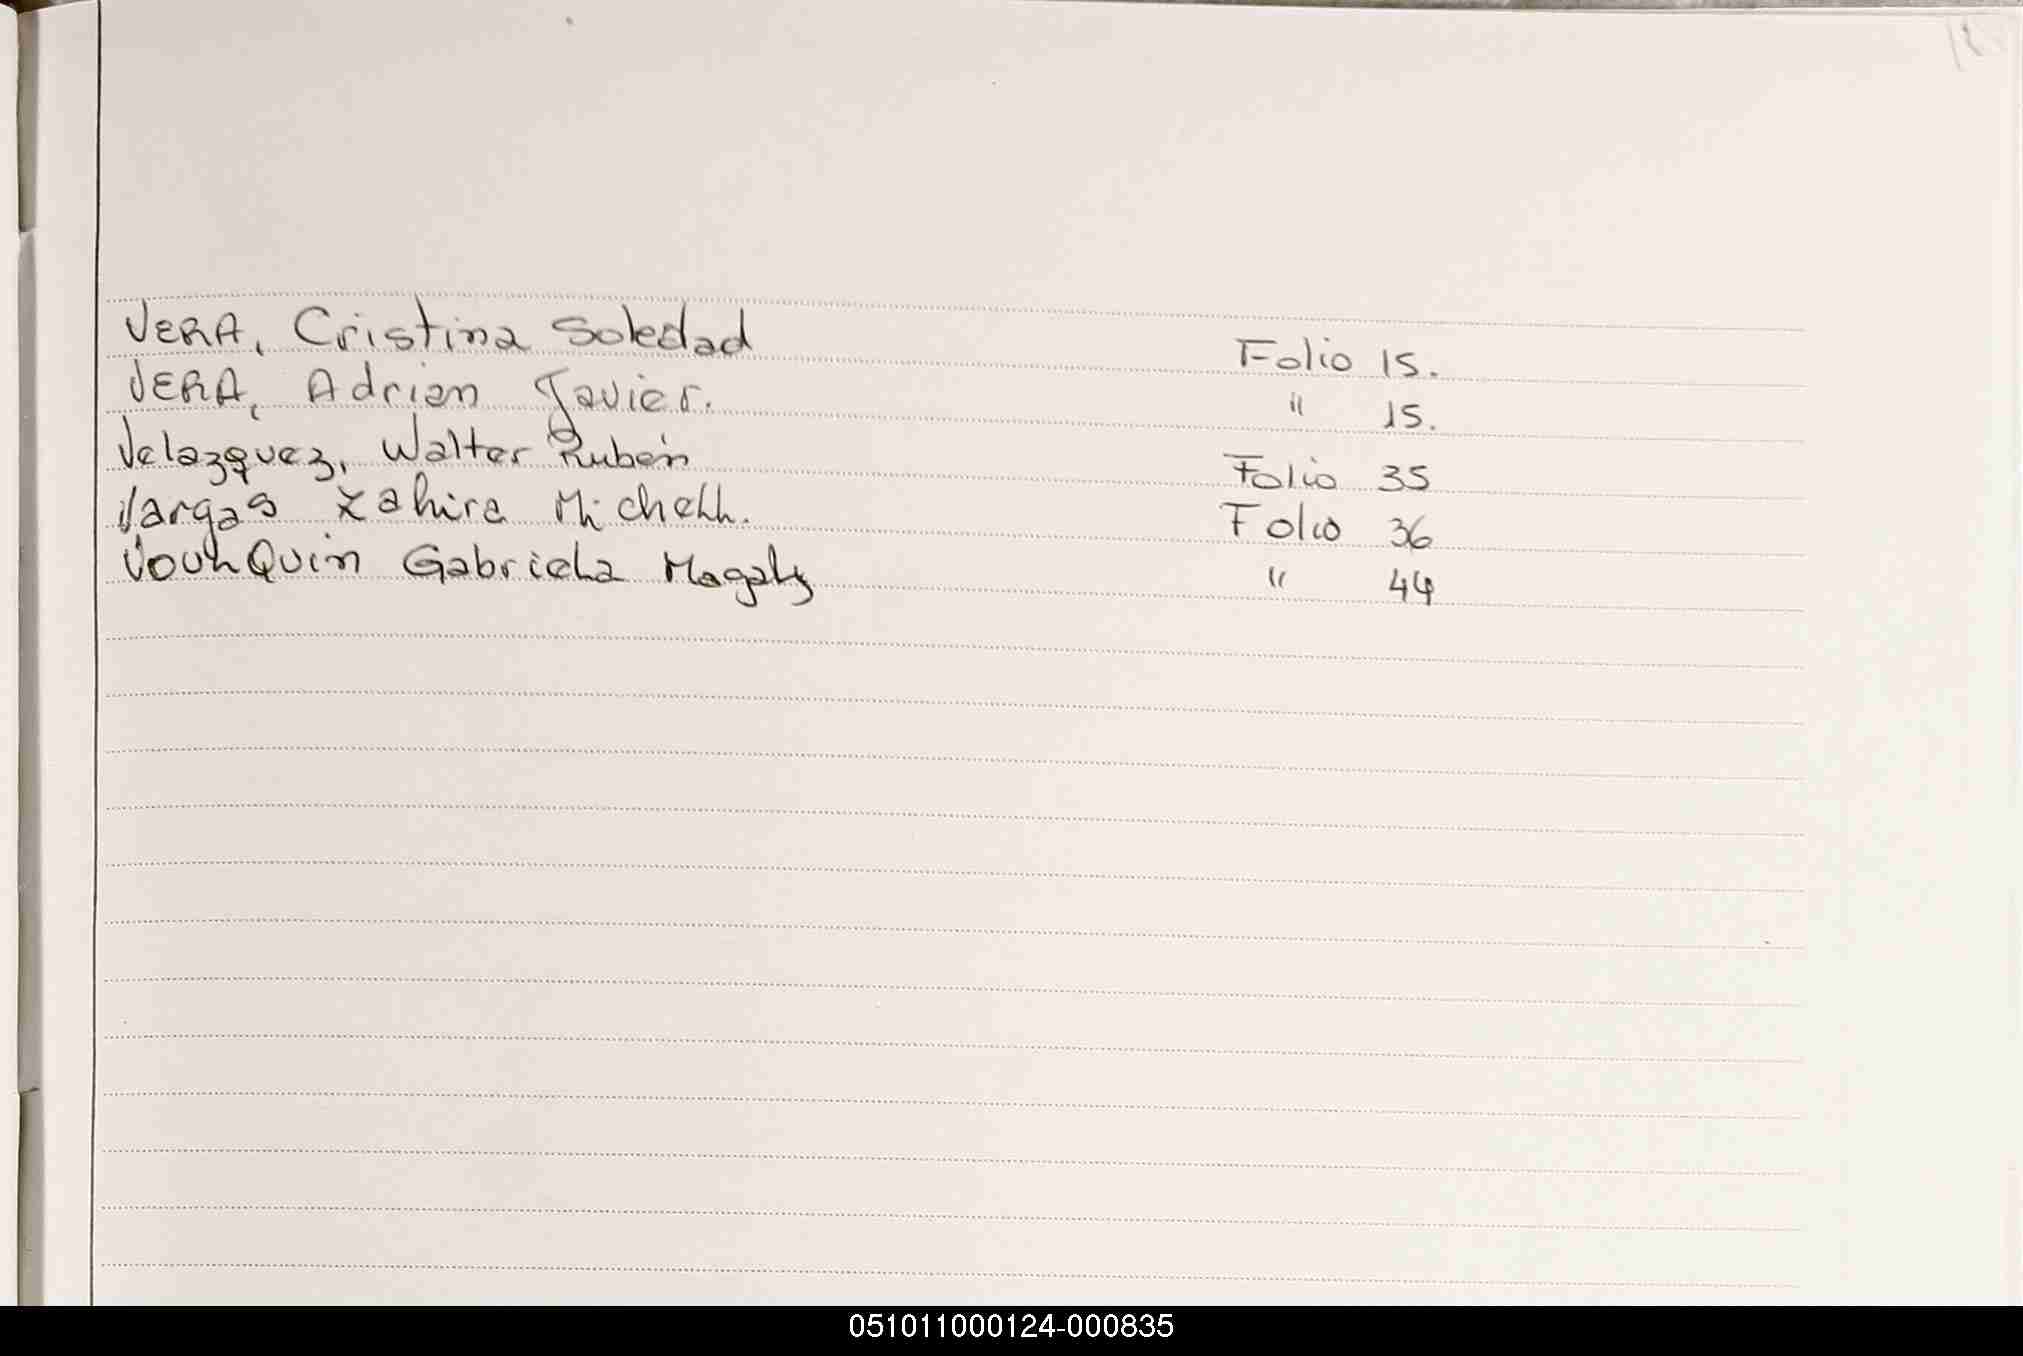 VERA, Cristina Soledad Folio 15.
VERA, Adrian Javier. " 15.
Velazquez, Walter Rubén Folio 35
Vargas Zahira Michell. Folio 36
Gabriela Magaly " 44
051011000124-000835